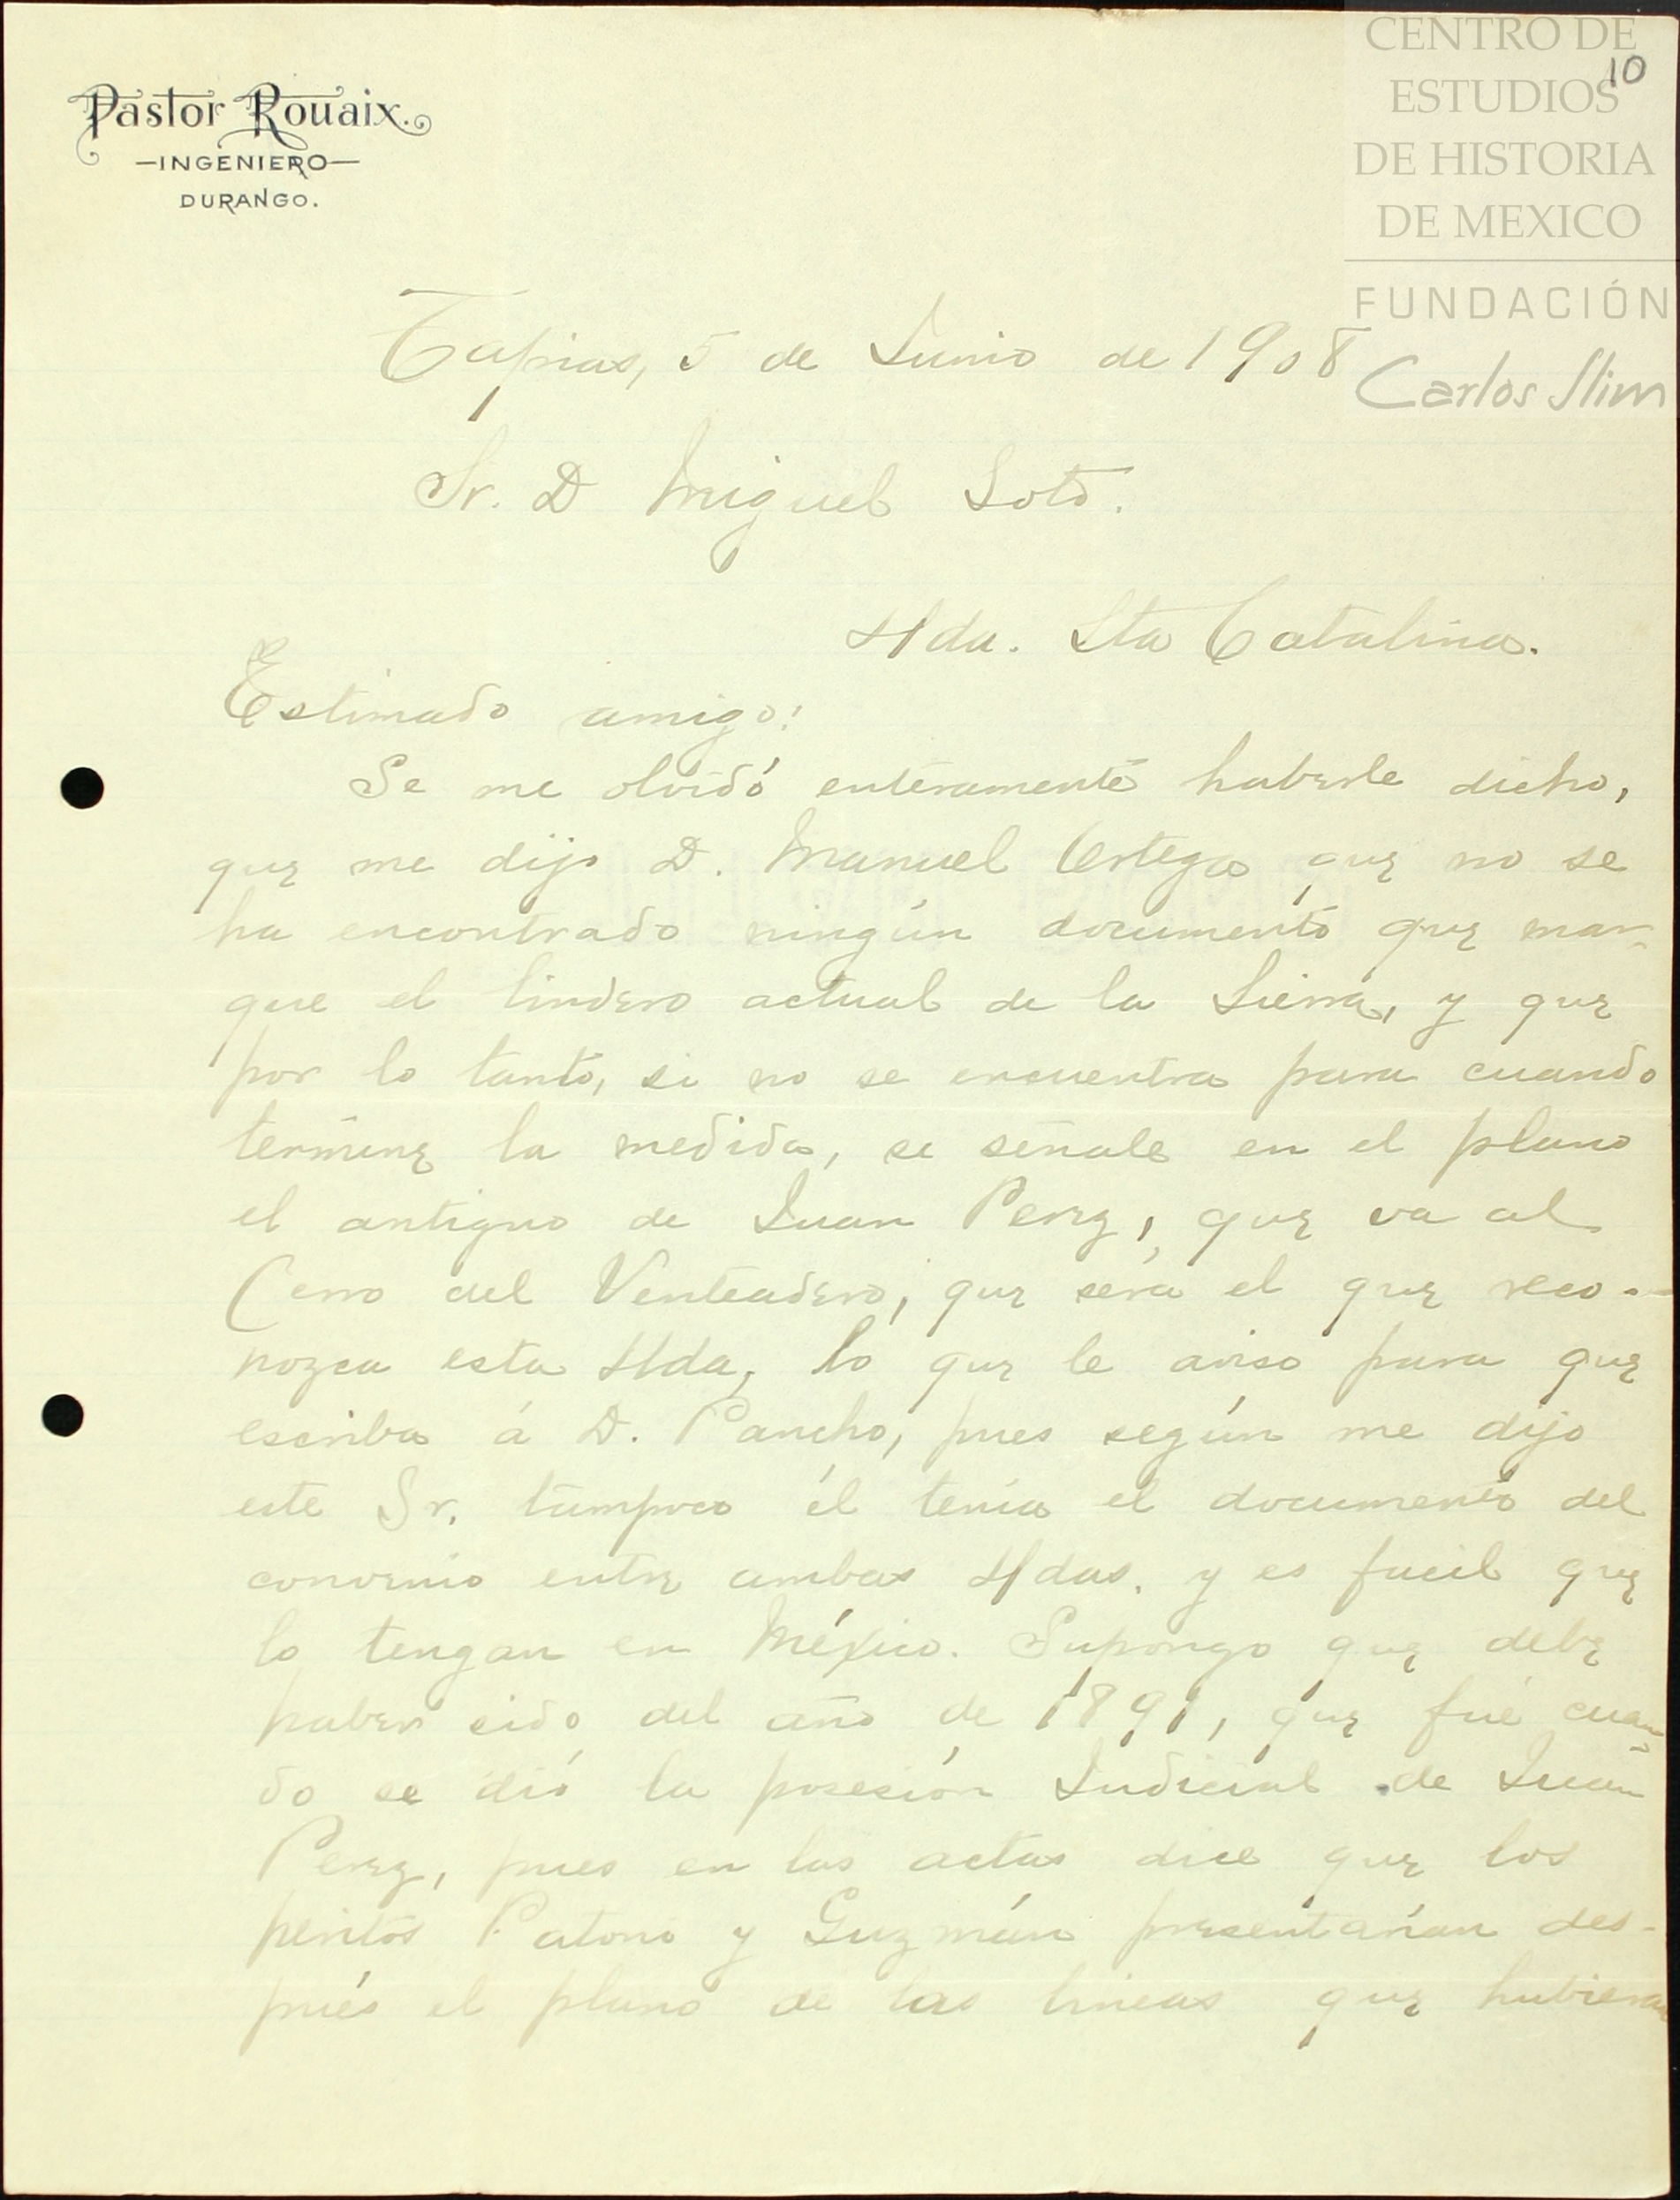 CENTRO DE
ESTUDIOS
DE HISTORIA
DE MEXICO
FUNDACIÓN
Carlos Slim
10
Pastor Rouaix.
—INGENIERO—
DURANGO.
Tapias, 5 de Junio de 1908
Sr. D Miguel Soto.
Hda. Sta Catalina.
Estimado amigo:
Se me olvidó enteramente haberle dicho,
que me dijo D. Manuel Ortega que no se
ha encontrado ningún documento que mar-
que el lindero actual de la Sierra, y que
por lo tanto, si no se encuentra para cuando
termine la medida, se señale en el plano
el antiguo de Juan Perez, que va al
Cerro del Venteadero, que sera el que reco-
nozca esta Hda, lo que le aviso para que
escriba á D. Pancho, pues según me dijo
este Sr. tampoco él tenia el documento del
convenio entre ambas Hdas. y es facil que
lo tengan en México. Supongo que debe
haber sido del año de 1891, que fué cuan-
do se dió la posesión Judicial de Juan
Perez, pues en las actas dice que los
peritos Patoni y Guzmán presentarían des-
pués el plano de las lineas que hubieran